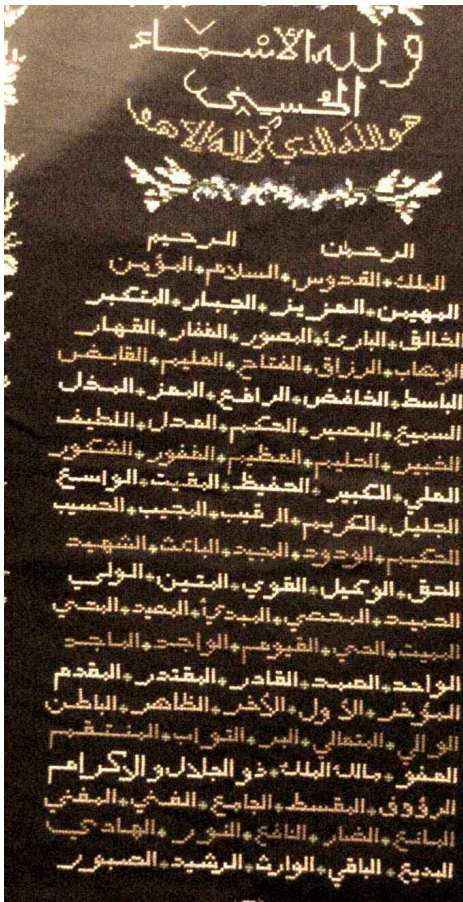 ولله الأسماء
الحسنى
هو الله الذي لا إله إلا هو
الرحمن الرحيم
الملك القدوس السلام المؤمن
المهيمن العزيز الجبار المتكبر
الخالق البارئ المصور الغفار القهار
الوهاب الرزاق الفتاح العليم القابض
الباسط الخافض الرافع المعز المذل
السميع البصير الحكم العدل اللطيف
الخبير الحليم العظيم الغفور الشكور
العلي الكبير الحفيظ المقيت الواسع
الجليل الكريم الرقيب المجيب الحسيب
الحكيم الودود المجيد الباعث الشهيد
الحق الوكيل القوي المتين الولي
الحميد المحصي المبدئ المعيد المحي
المميت الحي القيوم الواجد الماجد
الواحد الصمد القادر المقتدر المقدم
المؤخر الأول الآخر الظاهر الباطن
الوالي المتعالي البر التواب المنتقم
العفو مالك الملك ذو الجلال والإكرام
الرؤوف المقسط الجامع الغني المغني
المانع الضار النافع النور الهادي
البديع الباقي الوارث الرشيد الصبور